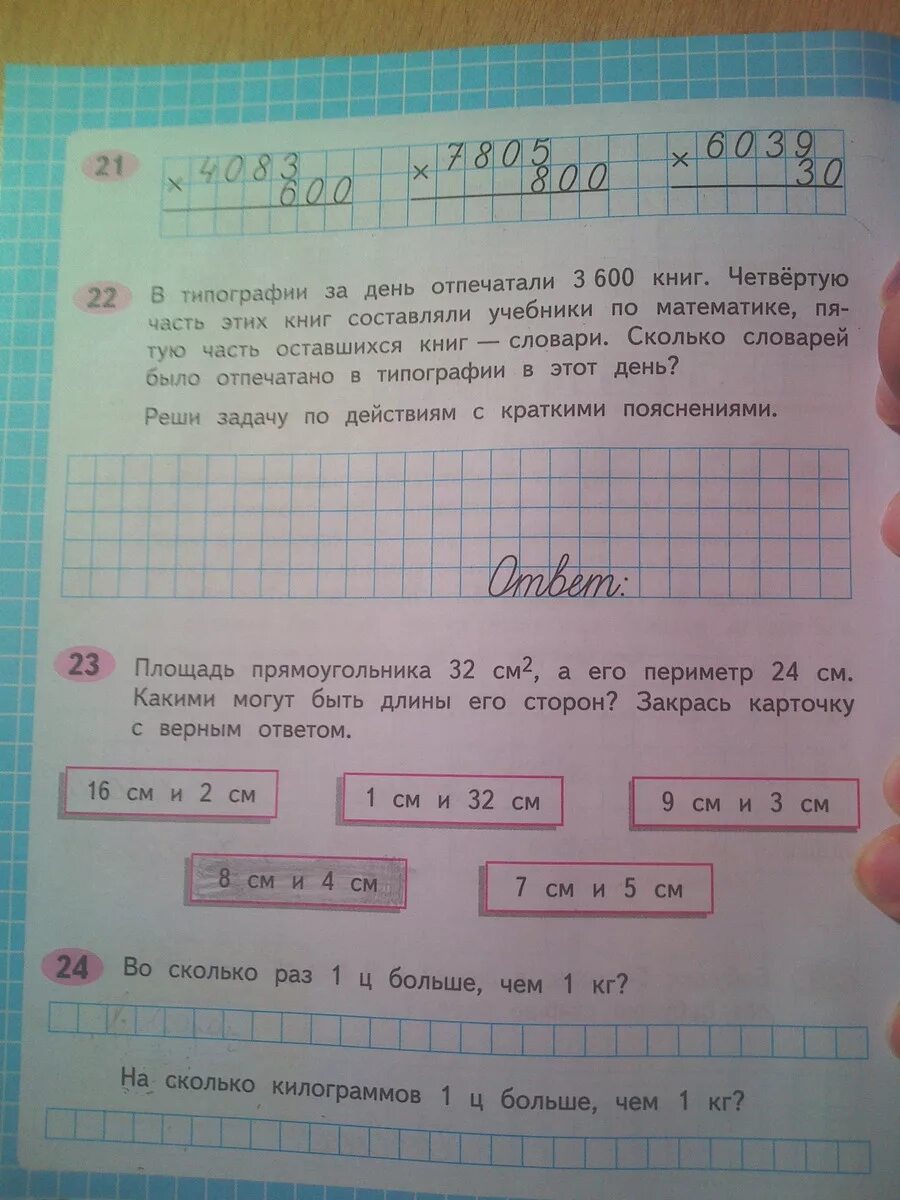 21
× 4083 × 7805 × 6039
600 800 30
22 В типографии за день отпечатали 3 600 книг. Четвёртую
часть этих книг составляли учебники по математике, пя-
тую часть оставшихся книг — словари. Сколько словарей
было отпечатано в типографии в этот день?
Реши задачу по действиям с краткими пояснениями.
Ответ:
23 Площадь прямоугольника 32 см², а его периметр 24 см.
Какими могут быть длины его сторон? Закрась карточку
с верным ответом.
16 см и 2 см 1 см и 32 см 9 см и 3 см
8 см и 4 см 7 см и 5 см
24 Во сколько раз 1 ц больше, чем 1 кг?
На сколько килограммов 1 ц больше, чем 1 кг?